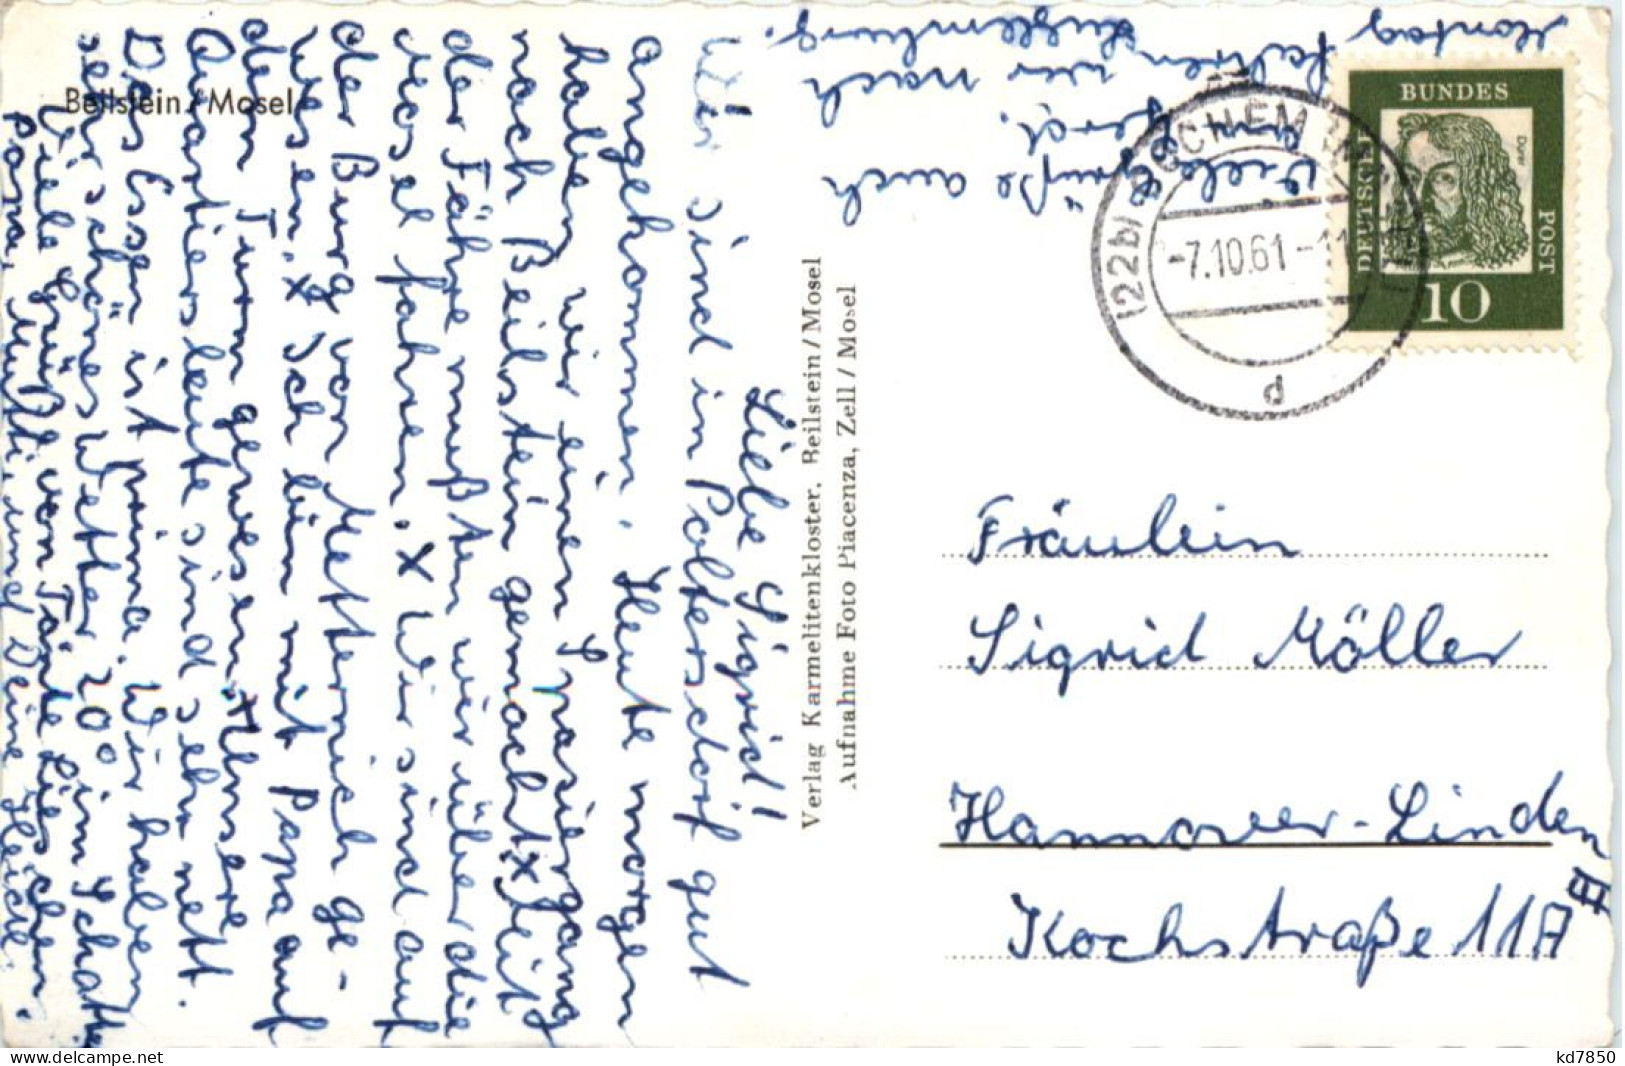 Beilstein / Mosel
Liebe Sigrid!
Wir sind in Poltersdorf gut
angekommen. Heute morgen
haben wir einen Spasiergang
nach Beilstein gemacht. x Mit
der Fähre mußten wir über die
Mosel fahren. x Wir sind auf
der Burg von Metternich ge-
wesen. x Ich bin mit Papa auf
dem Turm gewesen. x Unsere
Quartiersleute sind sehr nett.
Das Essen ist prima. Wir haben
sehr schönes Wetter 20° im Schatten
Viele Grüße von Tante Lieschen.
Papa, Mutti, und Deine Heide.
Montag
fahren wir nach
Luxemburg.
Viele Grüße auch
an Gerd.
Verlag Karmelitenkloster, Beilstein / Mosel
Aufnahme Foto Piacenza, Zell / Mosel
(22b) COCHEM
-7.10.61-11
d
DEUTSCHE
BUNDES
POST
Dürer
10
Fräulein
Sigrid Möller
Hannover-Linden
Kochstraße 11A
delcampe.net
kd7850